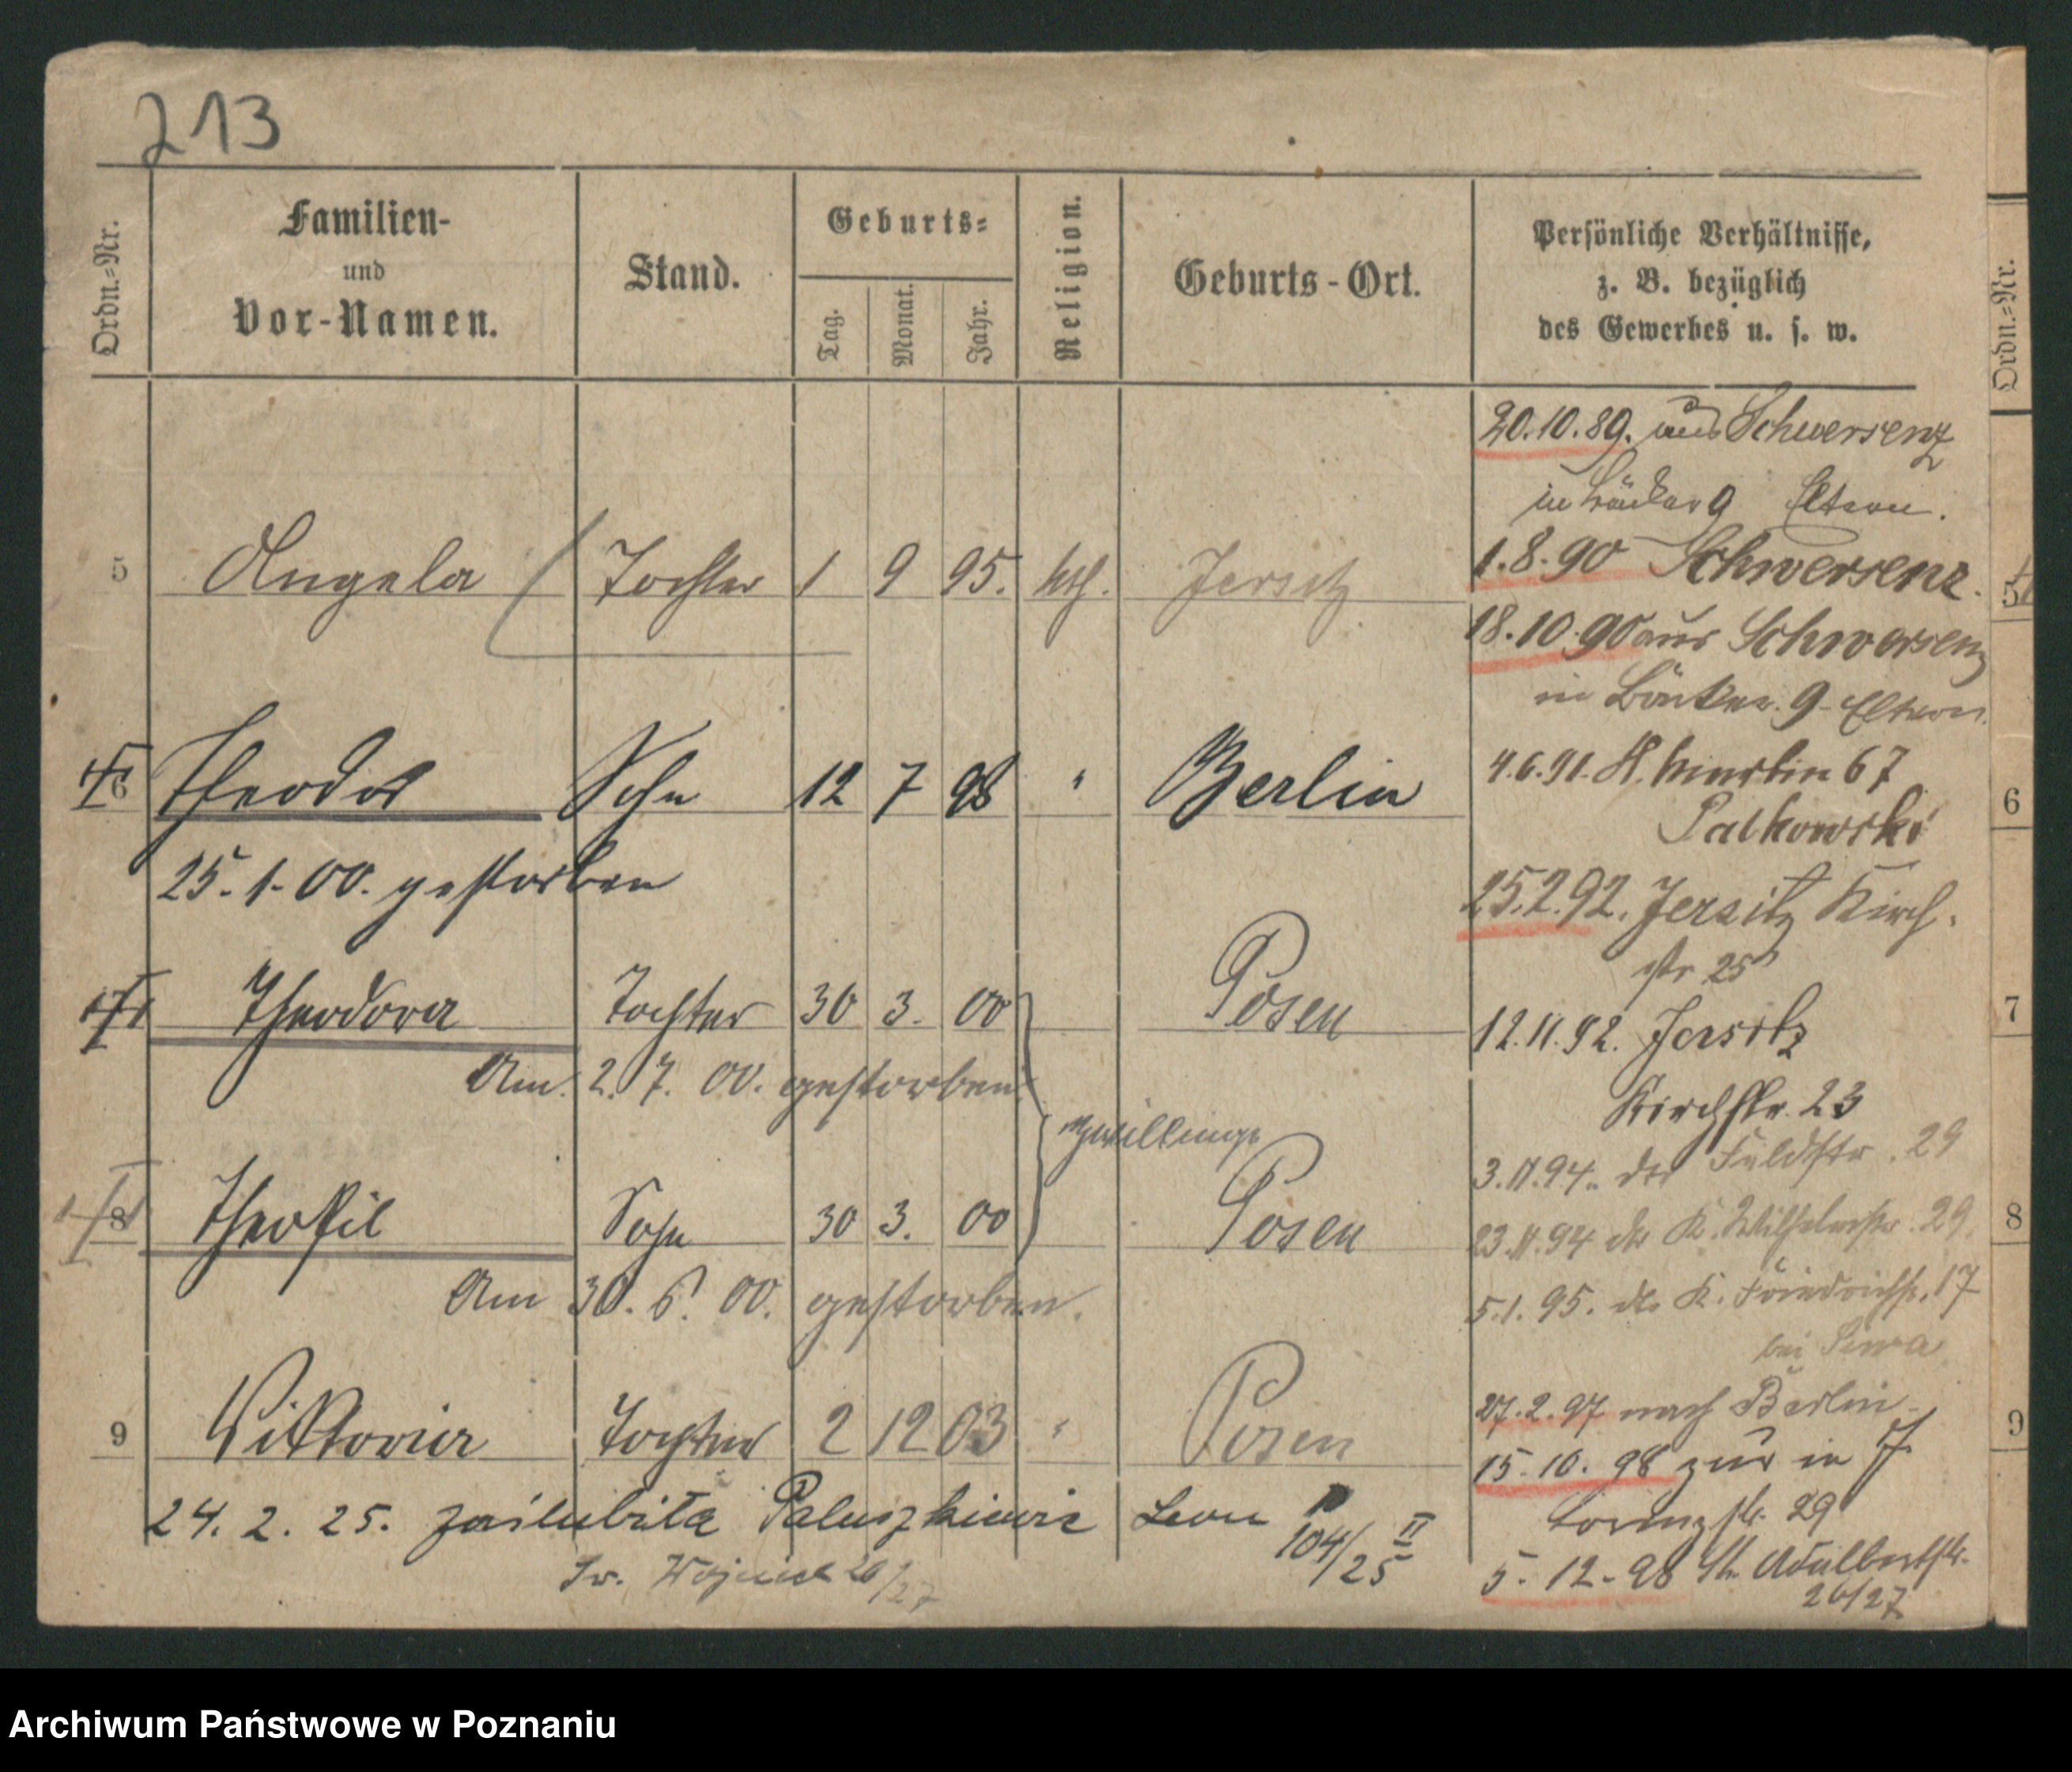 213
Ordn.-Nr.
Familien-
und
Vor-Namen.
Stand.
Geburts-
Tag.
Monat.
Jahr.
Religion.
Geburts-Ort.
Persönliche Verhältnisse,
z. B. bezüglich
des Gewerbes u. s. w.
Ordn.-Nr.
5 Angela Tochter 1 9 95. kth. Jersitz
6 Theodor Sohn 12 7 98 " Berlin
25.1.00. gestorben
7 Theodora Tochter 30 3. 00 Posen
Am 2.7.00. gestorben
Zwillinge
8 Theofil Sohn 30 3. 00 Posen
Am 30.6.00. gestorben.
9 Viktoria Tochter 2 12 03 " Posen
24.2.25. zaślubiła Paluszkiewicz Leon
104/25 II
Św. Wojciech 26/27
20.10.89. aus Schwersenz
in Bäcker 9 Eltern.
1.8.90 Schwersenz.
18.10.90 aus Schwersenz
in Bäcker. 9 Eltern.
4.6.91. St. Martin 67
Palkowski
25.2.92. Jersitz Kirch-
str 25
12.11.92. Jersitz
Kirchstr. 23
3.11.94. do Feldstr. 29
23.11.94 do K. Wilhelmstr. 29.
5.1.95. do K. Friedrichstr. 17
bei
27.2.97 nach Berlin
15.10.98 zur in J.
str. 29
5.12.98 St. Adalbertstr.
26/27
5
6
7
8
9
Archiwum Państwowe w Poznaniu